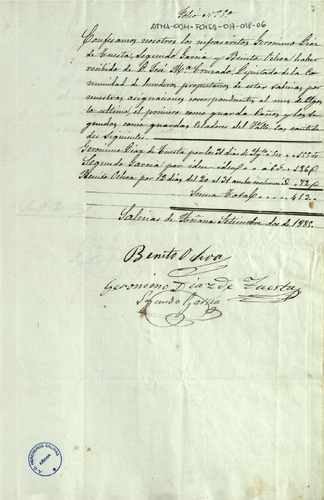 Folio N.º 1º
ATHA-DOH-FCHSA-017-018-06
Confesamos nosotros los infrascritos Geronimo Diaz
de Tuesta, Segundo Garcia y Benito Ochoa haber
recibido de D. José Mª Cruzado, Diputado de la Co-
munidad de herederos propietarios de estas salinas por
nuestras asignaciones correspondientes al mes de Agos-
to ultimo, el primero como guarda Caños y los se-
gundos como guardas Celadores del Valle, las cantida-
des Siguientes.
Geronimo Diaz de Tuesta por los 31 dias de
Segundo Garcia por
Benito Ochoa por 12 dias del 20 al 31 ambos inclusive 72
Suma Total 413
Salinas de Añana Setiembre dos de 1885.
Benito Ochoa
Geronimo Diaz de Tuesta
Segundo Garcia
AÑANA